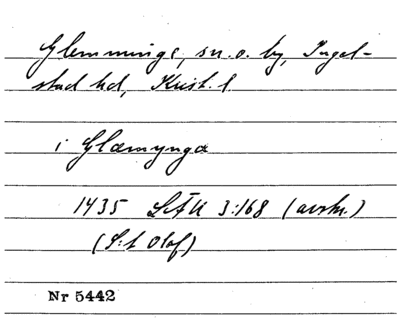 Glemminge, sn. o. by, Ingel-
stad hd, Krist. l
i Glæmynga
1435 LÄU 3:168 (avskr.)
(S:t Olof)
Nr 5442